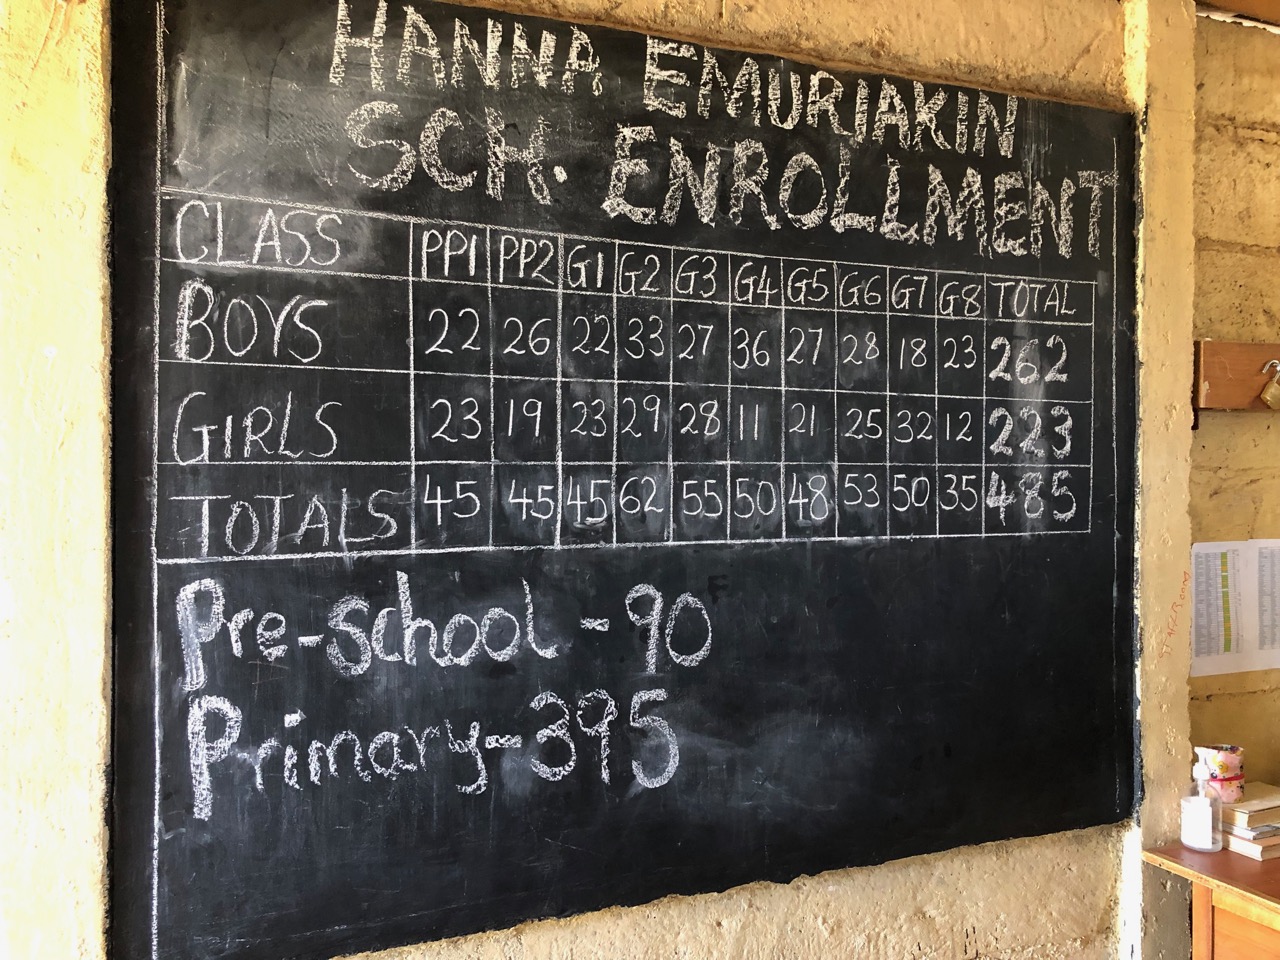 HANNA EMURIAKIN
SCH. ENROLLMENT
CLASS PP1 PP2 G1 G2 G3 G4 G5 G6 G7 G8 TOTAL
BOYS 22 26 22 33 27 36 27 28 18 23 262
GIRLS 23 19 23 29 28 11 21 25 32 12 223
TOTALS 45 45 45 62 55 50 48 53 50 35 485
Pre-school - 90
Primary - 395
STAFF ROOM